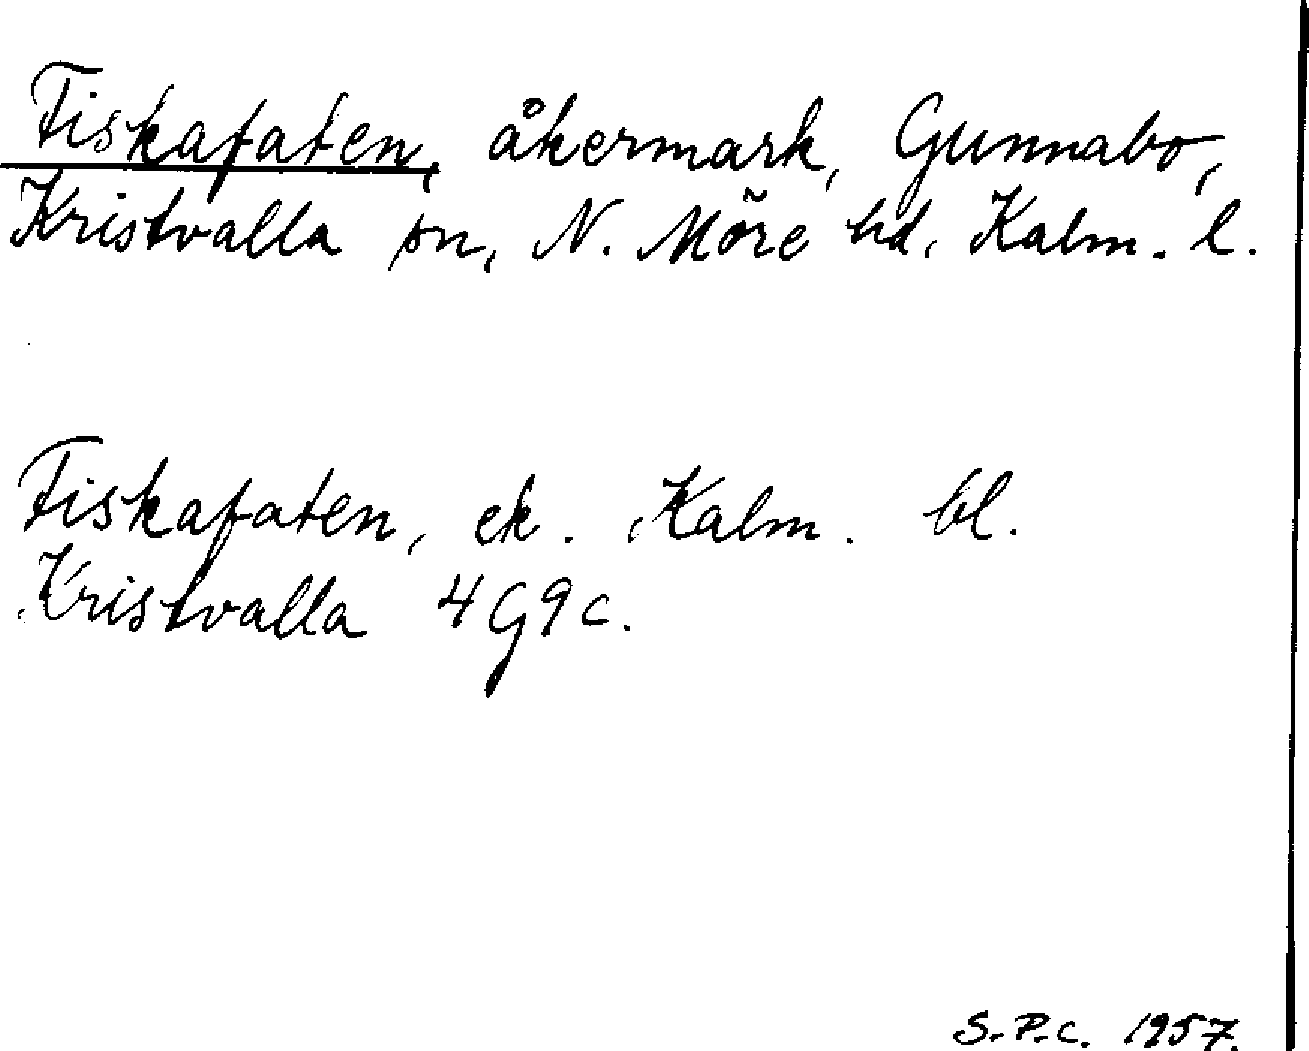 Fiskafaten, åkermark, Gunnabo,
Kristvalla sn, N. Möre hd, Kalm. l.
Fiskafaten, ek. Kalm. bl.
Kristvalla 4G9c.
S.P.C. 1957.